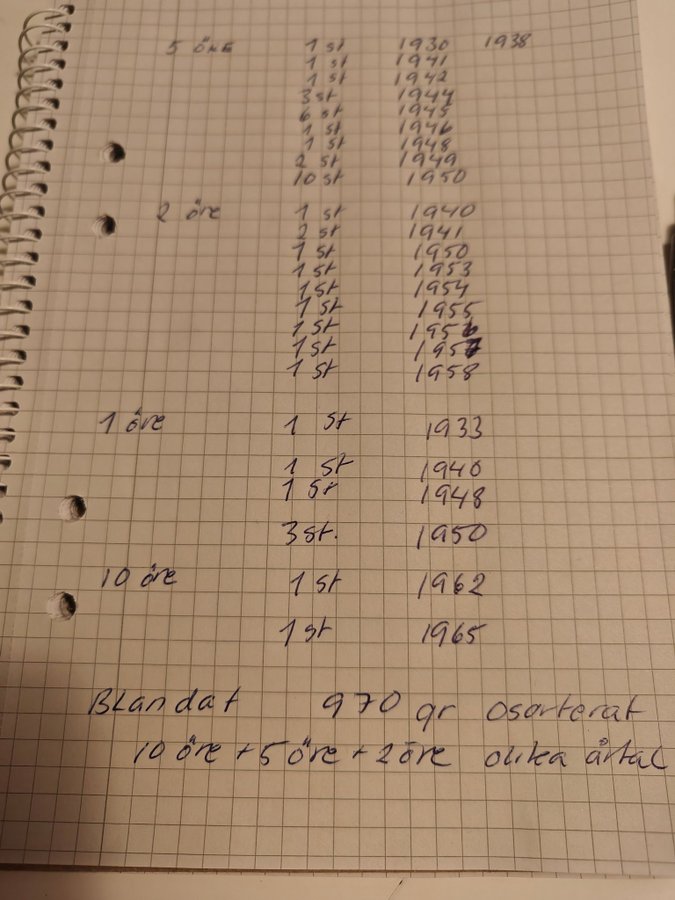 5 öre 1 st 1930 1938
1 st 1941
1 st 1942
3 st 1944
6 st 1945
1 st 1946
1 st 1948
2 st 1949
10 st 1950
2 öre 1 st 1940
2 st 1941
1 st 1950
1 st 1953
1 st 1954
1 st 1955
1 st 1956
1 st 1957
1 st 1958
1 öre 1 st 1933
1 st 1940
1 st 1948
3 st. 1950
10 öre 1 st 1962
1 st 1965
Blandat 970 gr osorterat
10 öre + 5 öre + 2 öre olika årtal